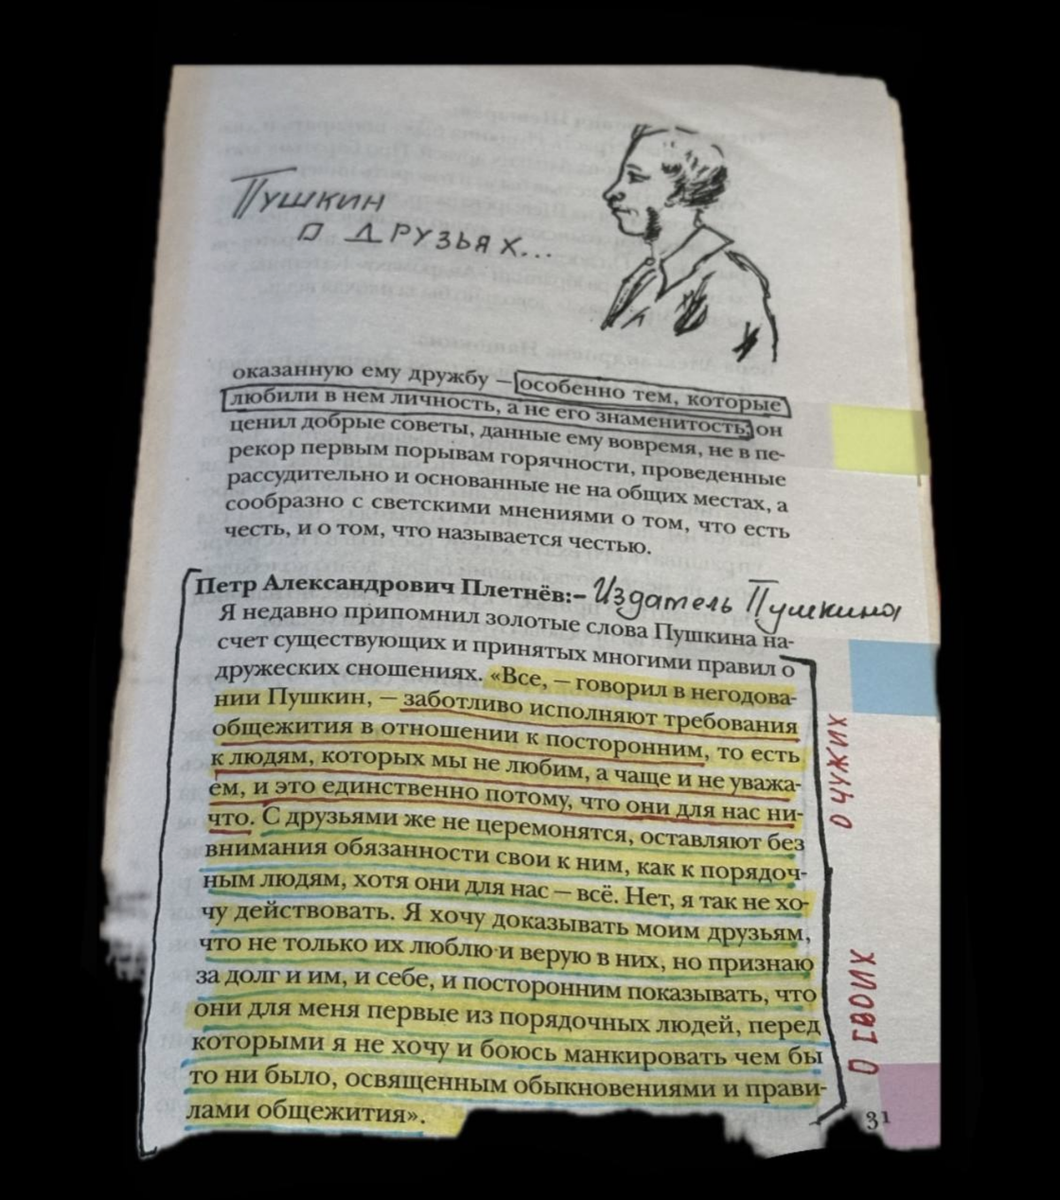 Пушкин
о друзьях...
оказанную ему дружбу — особенно тем, которые
любили в нем личность, а не его знаменитость; он
ценил добрые советы, данные ему вовремя, не в пе-
рекор первым порывам горячности, проведенные
рассудительно и основанные не на общих местах, а
сообразно с светскими мнениями о том, что есть
честь, и о том, что называется честью.
Петр Александрович Плетнёв:- Издатель Пушкина
Я недавно припомнил золотые слова Пушкина на-
счет существующих и принятых многими правил о
дружеских сношениях. «Все, — говорил в негодова-
нии Пушкин, — заботливо исполняют требования
общежития в отношении к посторонним, то есть
к людям, которых мы не любим, а чаще и не уважа-
ем, и это единственно потому, что они для нас ни-
что. С друзьями же не церемонятся, оставляют без
внимания обязанности свои к ним, как к порядоч-
ным людям, хотя они для нас — всё. Нет, я так не хо-
чу действовать. Я хочу доказывать моим друзьям,
что не только их люблю и верую в них, но признаю
за долг и им, и себе, и посторонним показывать, что
они для меня первые из порядочных людей, перед
которыми я не хочу и боюсь манкировать чем бы
то ни было, освященным обыкновениями и прави-
лами общежития».
о чужих
о своих
31